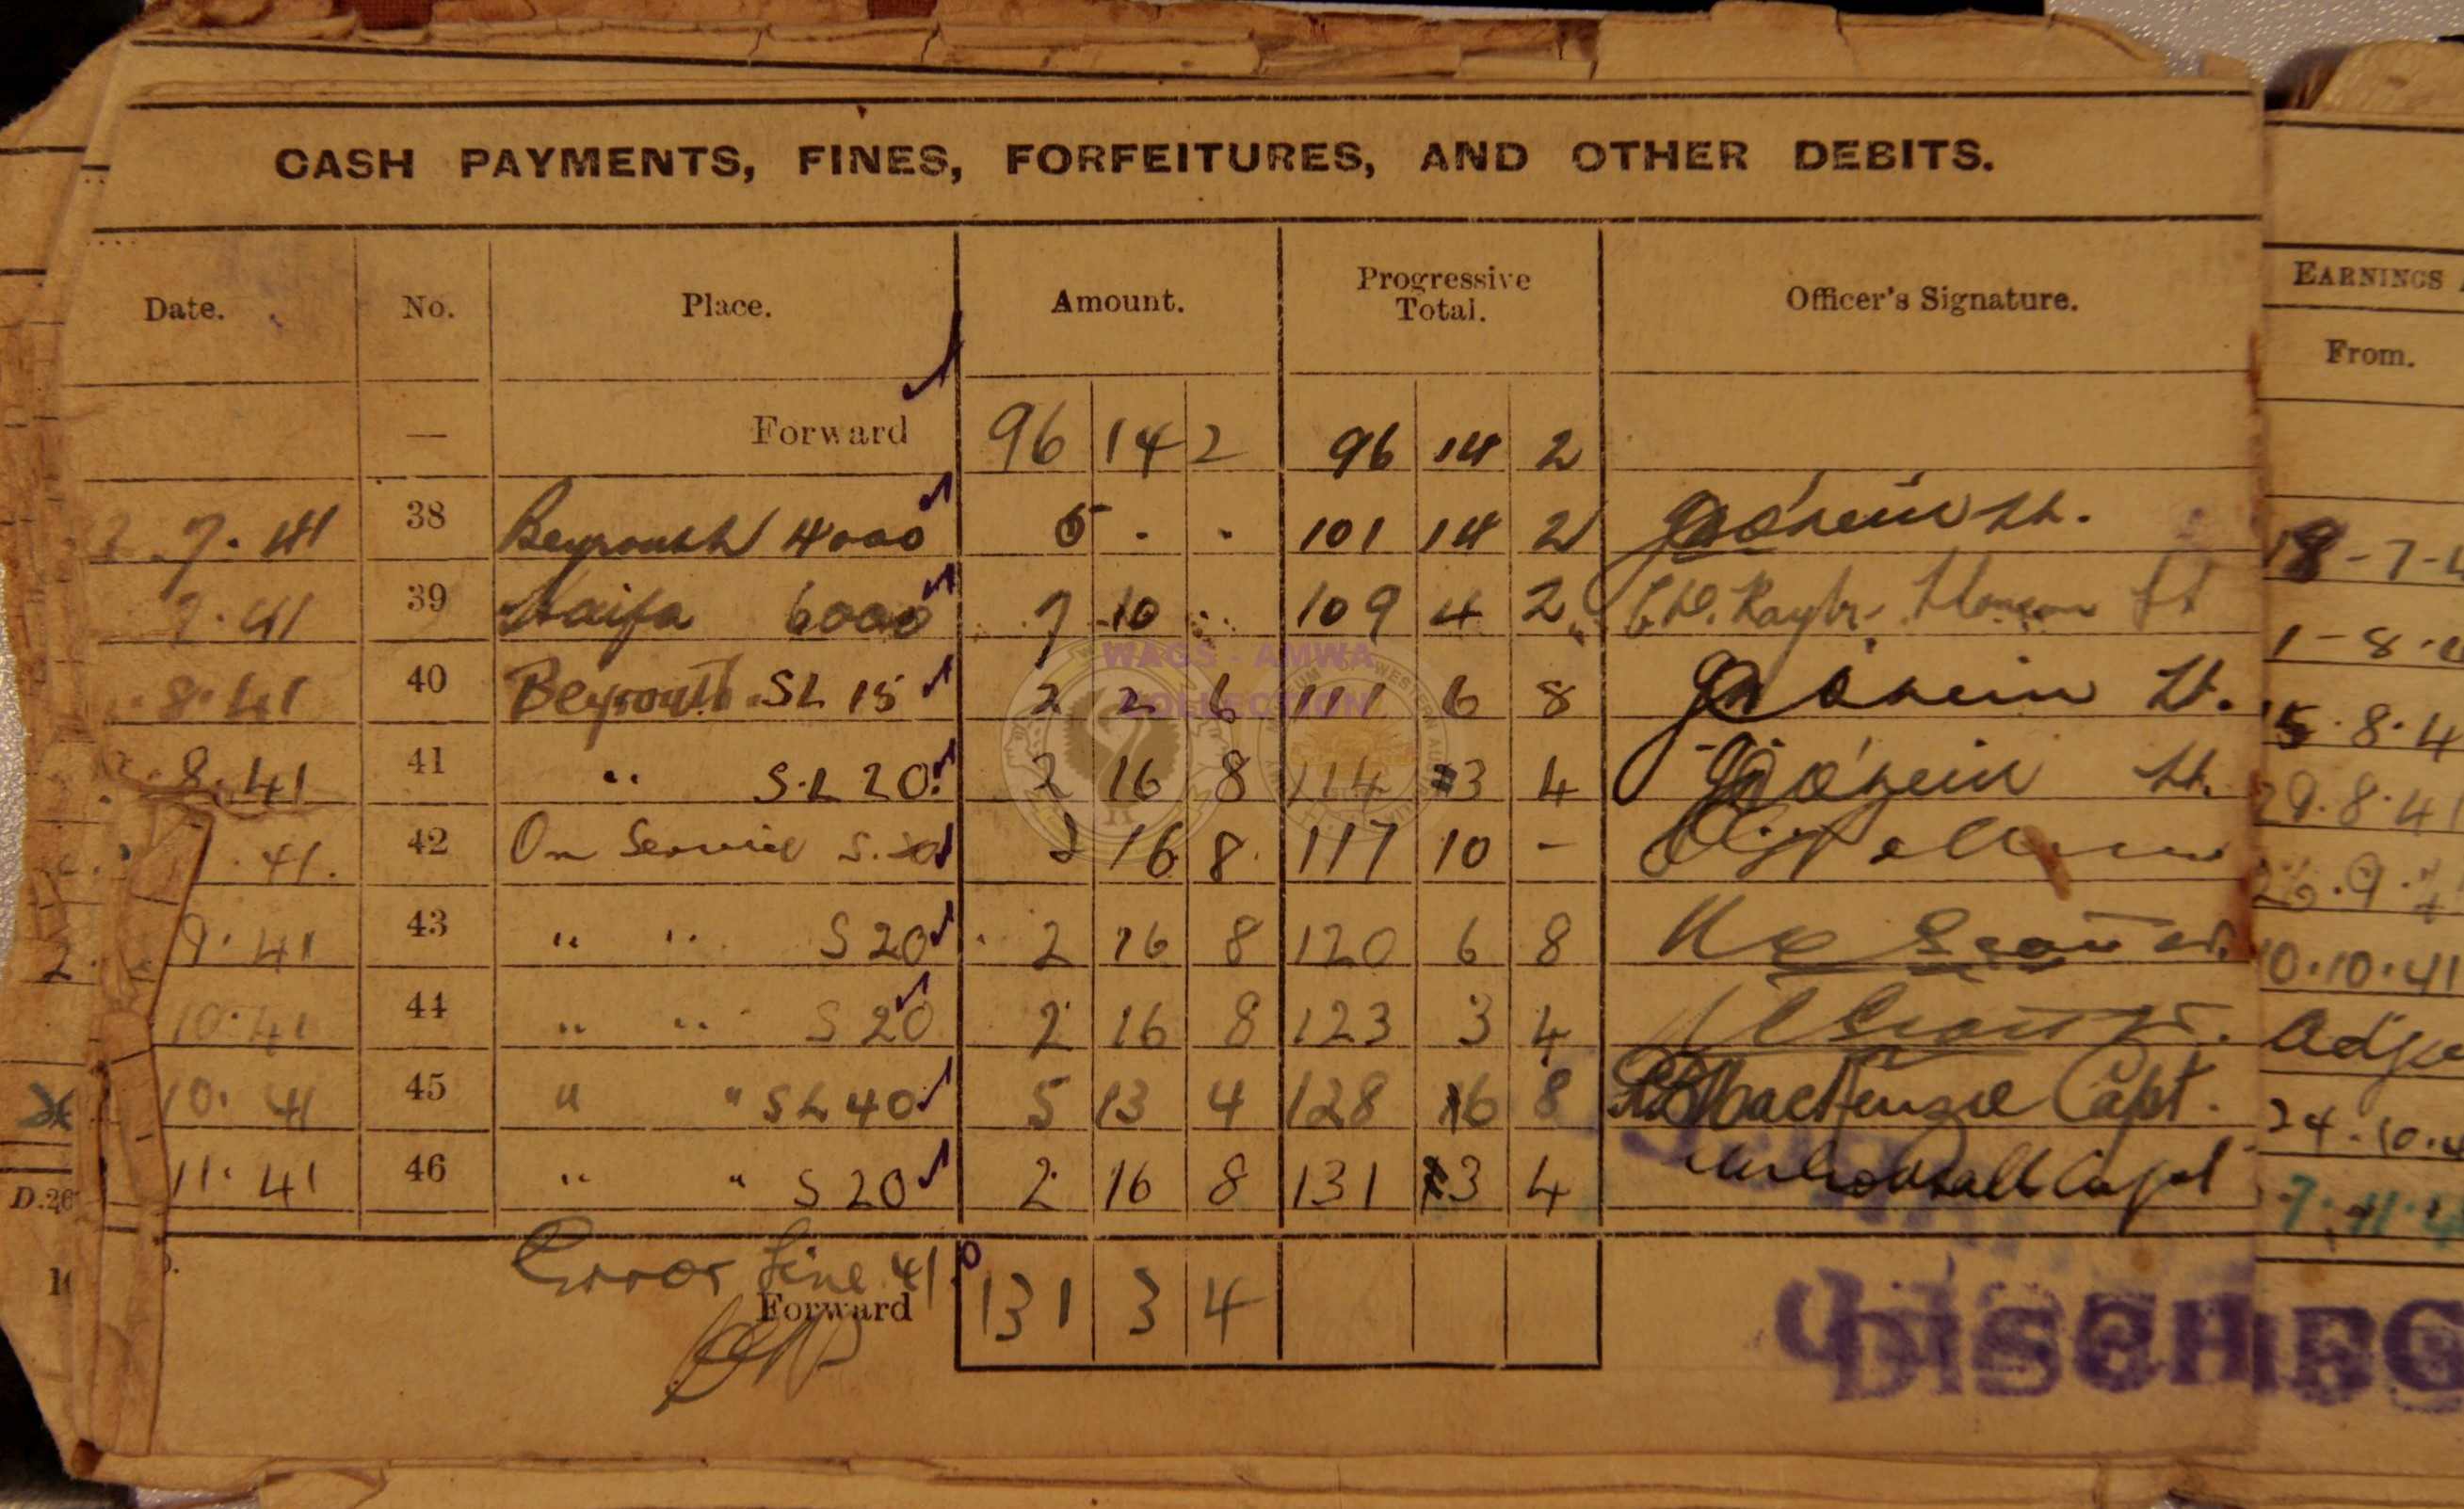 CASH PAYMENTS, FINES, FORFEITURES, AND OTHER DEBITS.
Date. No. Place. Amount. Progressive Total. Officer's Signature.
— Forward 96 14 2 96 14 2
7.41 38 Beyrouth 4000 5 . . 101 14 2 Lt.
7.41 39 Haifa 6000 7 10 .. 109 4 2 Lt
8.41 40 Beyrouth SL 15 2 2 6 111 6 8 Lt.
8.41 41 " S.L 20 2 16 8 114 3 4 Lt.
.41. 42 On Service S. 20 2 16 8 117 10 -
9.41 43 " " S 20 2 16 8 120 6 8
10.41 44 " " S 20 2 16 8 123 3 4
10.41 45 " " SL 40 5 13 4 128 16 8 MacKenzie Capt.
11.41 46 " " S 20 2 16 8 131 13 4 Capt
Error line 41
Forward 131 3 4
WAGS - AMWA
COLLECTION
DISCHRG
EARNINGS
From.
18-7-4
1-8-4
15.8.4
29.8.41
26.9.4
10.10.41
Adjs
24.10.4
7.11.4
D.26